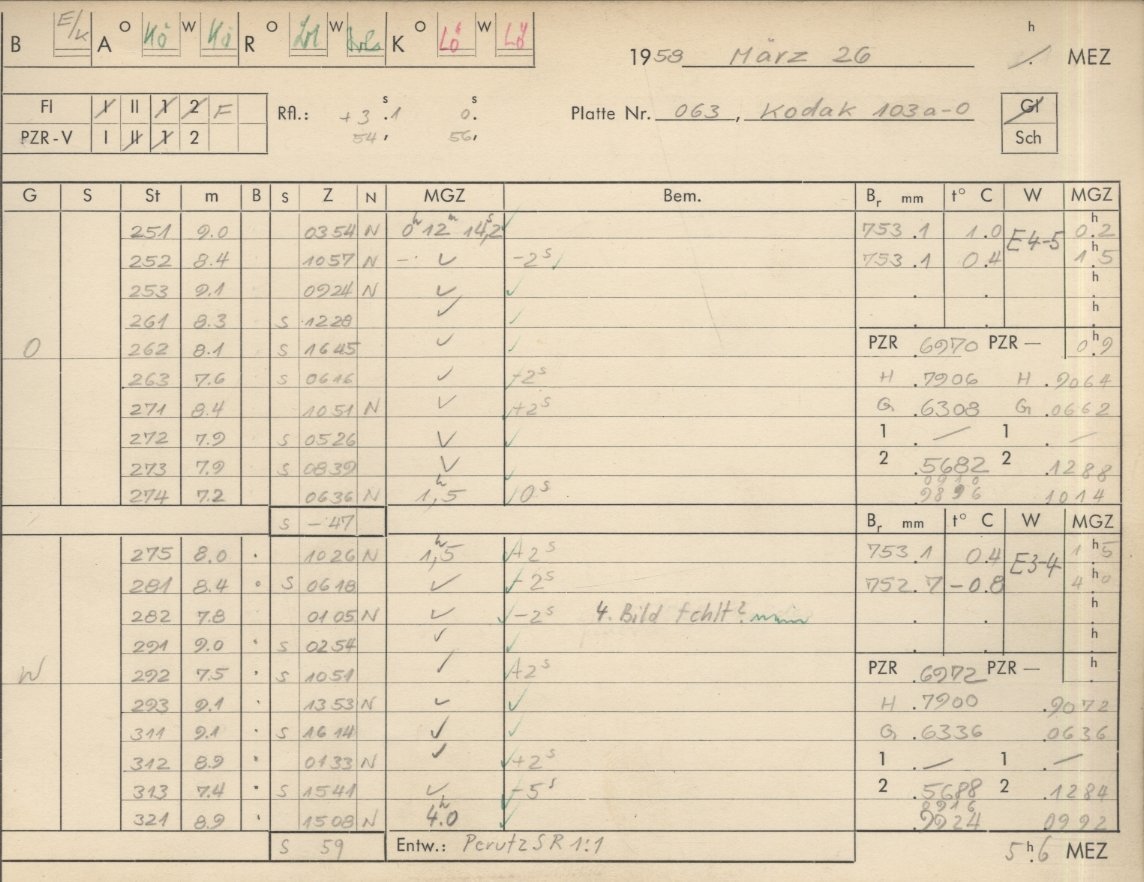 B E/K A O Kö W Kö R O W K O Lö W Lö
1958 März 26 h MEZ
Fl I II 1 2 F
PZR-V I II 1 2
Rfl.: +3 s.1 0 s.
54, 56,
Platte Nr. 063, Kodak 103a-O
Gl
Sch
G S St m B S Z N MGZ Bem. Br mm t° C W MGZ
251 9.0 0354 N 0h 12m 14,2s ✓ 753.1 1.0 E4-5 0h.2
252 8.4 1057 N - ✓ -2s 753.1 0.4 1h.5
253 9.1 0924 N ✓ ✓ h
261 8.3 S 1228 ✓ ✓ h
O 262 8.1 S 1645 ✓ ✓ PZR .6970 PZR — 0h.9
263 7.6 S 0616 ✓ +2s H .7906 H .9064
271 8.4 1051 N ✓ +2s G .6308 G .0662
272 7.9 S 0526 ✓ ✓ 1 . — 1 . —
273 7.9 S 0839 ✓ 2 .5682 2 .1288
274 7.2 0636 N 1,5h 0s 9896 1014
S -47 Br mm t° C W MGZ
275 8.0 . 1026 N 1,5h +2s 753.1 0.4 E3-4 1h.5
281 8.4 S 0618 ✓ +2s 752.7 -0.8 4h.0
282 7.8 0105 N ✓ -2s 4. Bild fehlt? nein h
291 9.0 . S 0254 ✓ ✓ h
W 292 7.5 . S 1051 ✓ +2s PZR .6972 PZR — h
293 9.1 . 1353 N ✓ ✓ H .7900 .9072
311 9.1 . S 1614 ✓ ✓ G .6336 .0636
312 8.9 . 0133 N ✓ +2s 1 . — 1 . —
313 7.4 . S 1541 ✓ -5s 2 .5688 2 .1284
0916
321 8.9 1508 N 4.0h ✓ .9924 0992
S 59 Entw.: Perutz SR 1:1 5h.6 MEZ